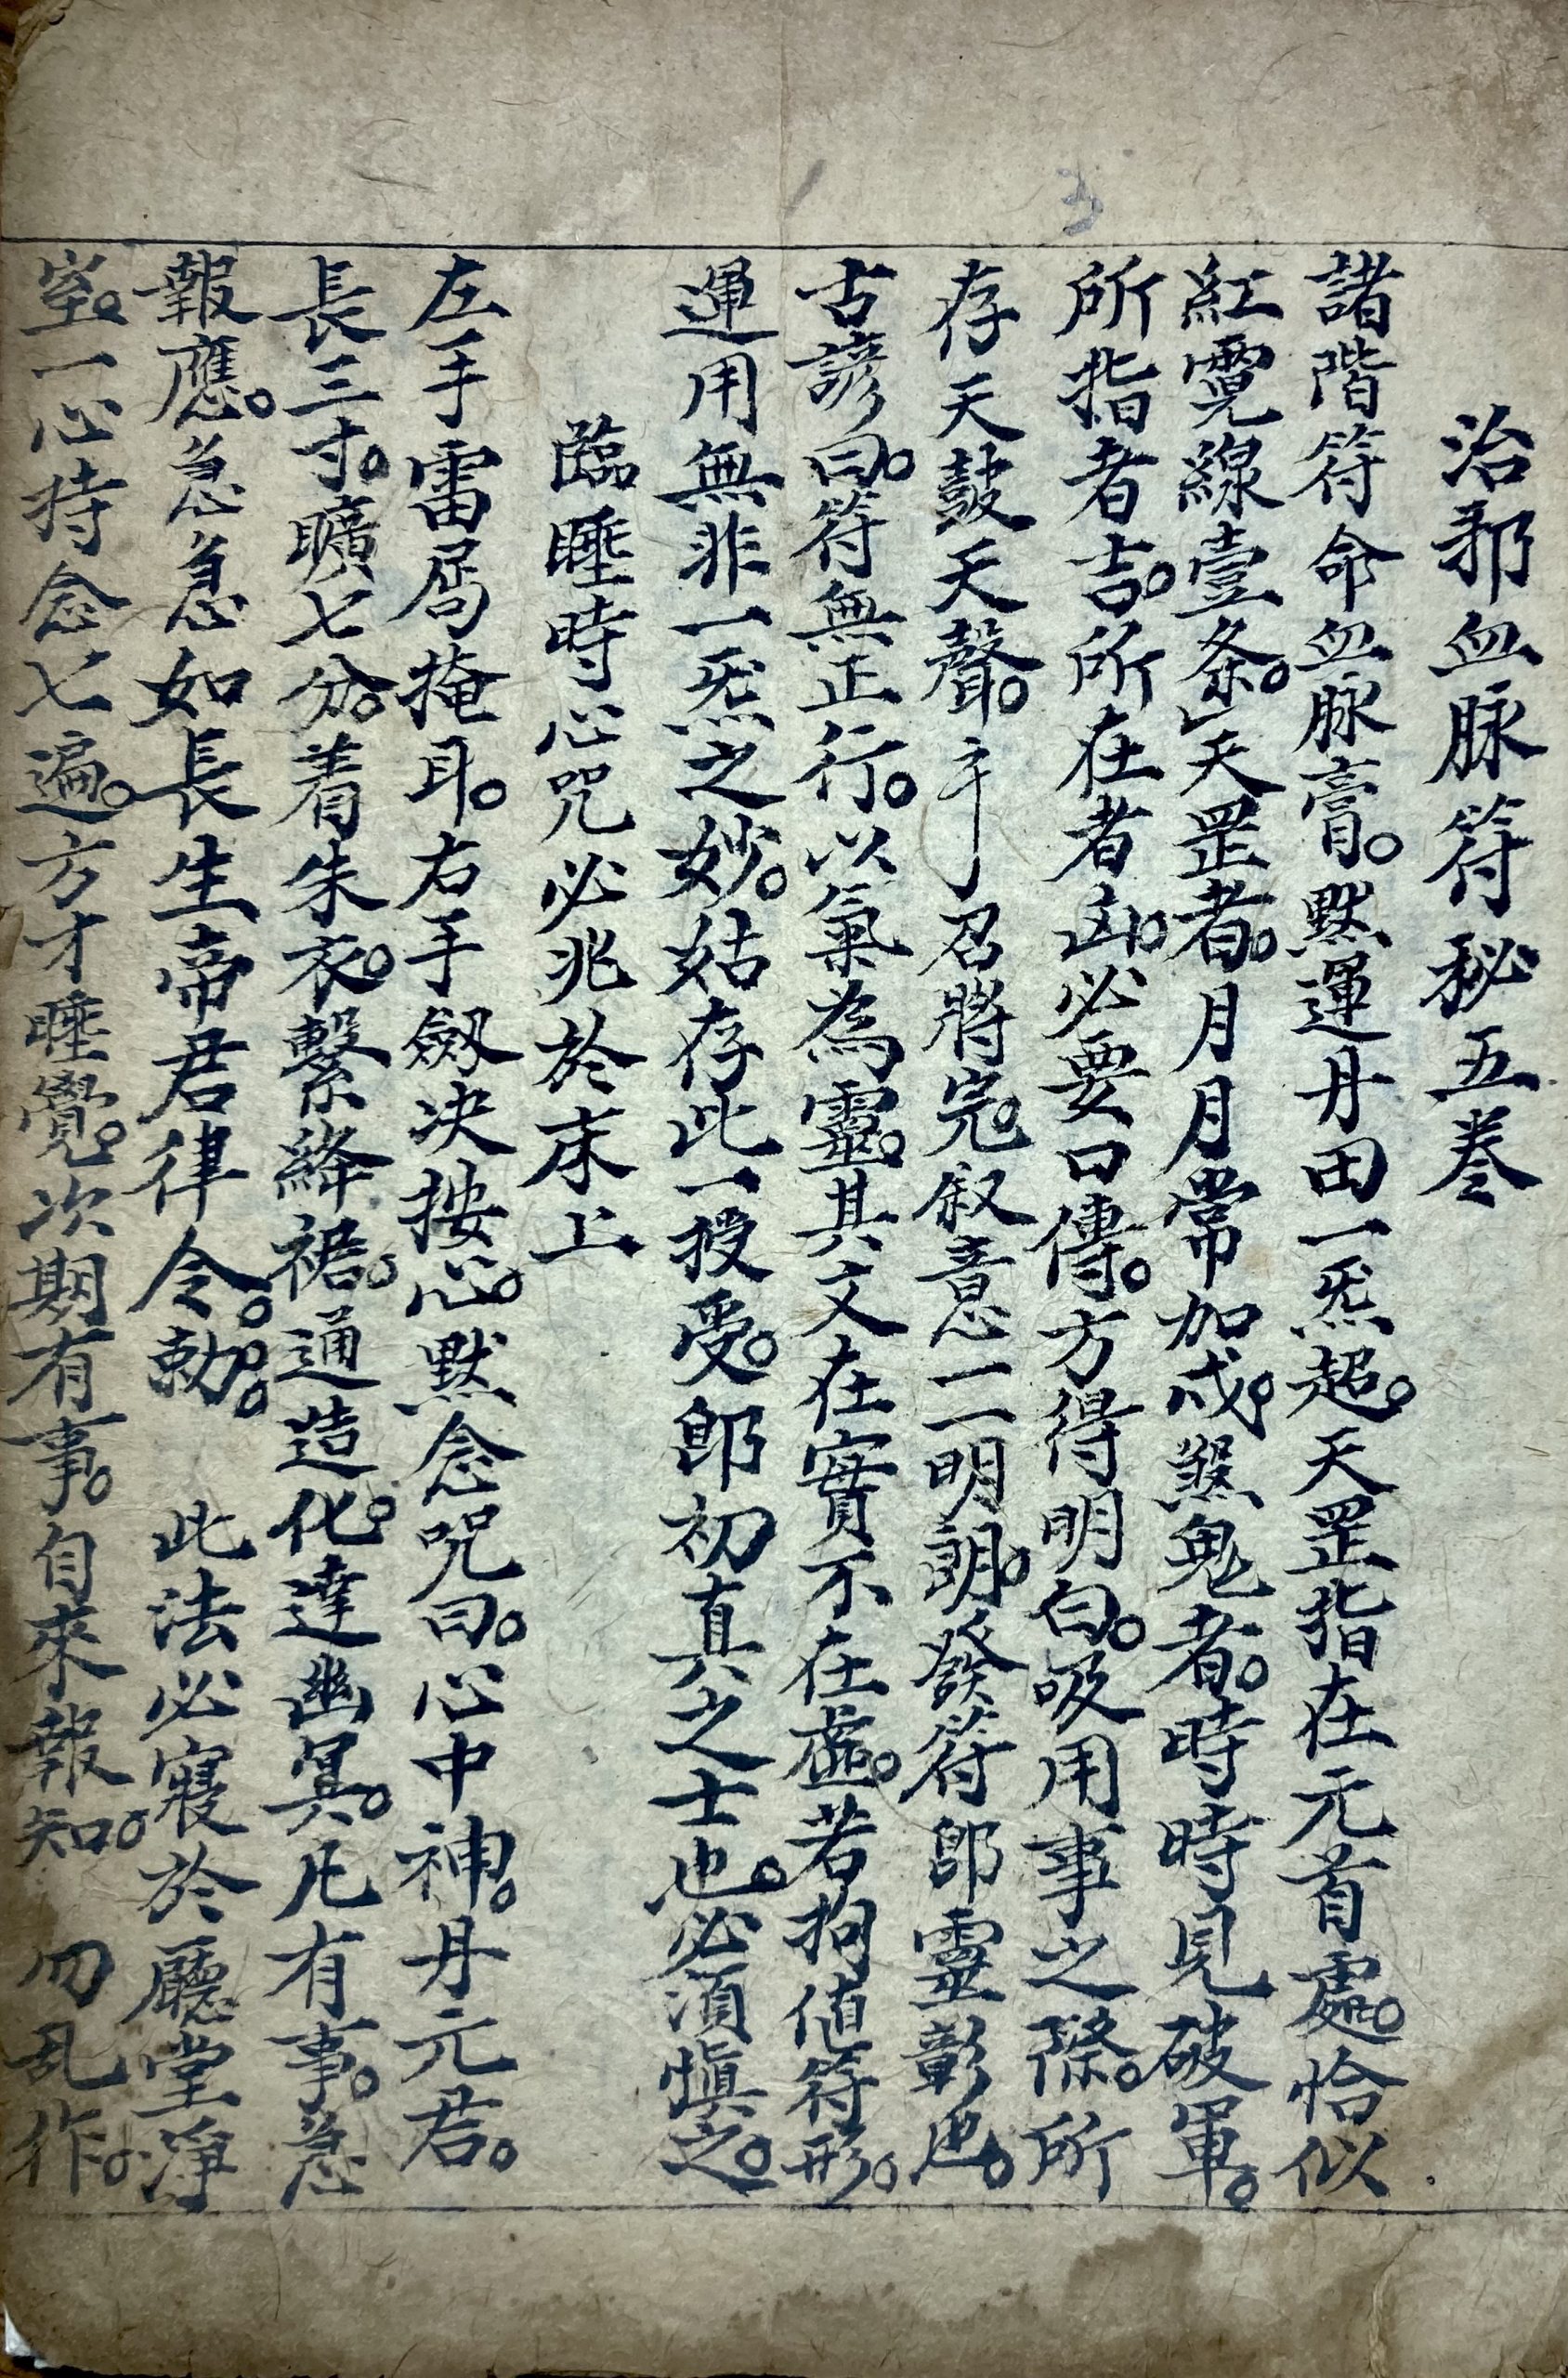 治邪血脉符秘五卷
諸階符命血脉膏。默運丹田一炁超。天罡指在元首處。恰似
紅霓線壹条。天罡者。月月常加戌。煞鬼者。時時見破軍。
所指者吉。所在者凶。必要口傳。方得明白。吸用事之際。所
存天鼓天聲。召將完。叙意一一明朗。發符即靈彰也。
古諺曰。符無正行。以氣為靈。其文在實不在虛。若拘值符形。
運用無非一炁之妙。姑存此一授受。即初真之士也。必須慎之。
臨睡時心咒必兆於床上
左手雷局掩耳。右手劔决按心。默念咒曰。心中神。丹元君。
長三寸。曠七分。着朱衣。繫絳裙。通造化。達幽冥。凡有事。急
報應。急急如長生帝君律令。勅。。此法必寢於廳堂淨
室。一心持念七遍。方才睡覺。次期有事。自來報知。叨乱作。